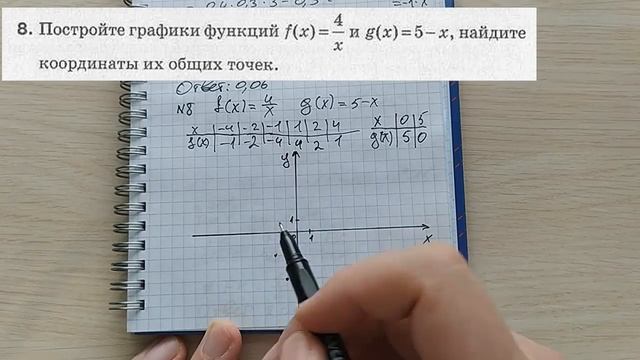 8. Постройте графики функций f(x)=4/x и g(x)=5−x, найдите
координаты их общих точек.
Ответ: 0,06
№8 f(x)=4/x g(x)=5-x
x | -4 | -2 | -1 | 1 | 2 | 4
f(x) | -1 | -2 | -4 | 4 | 2 | 1
x | 0 | 5
g(x) | 5 | 0
y
1
1
x